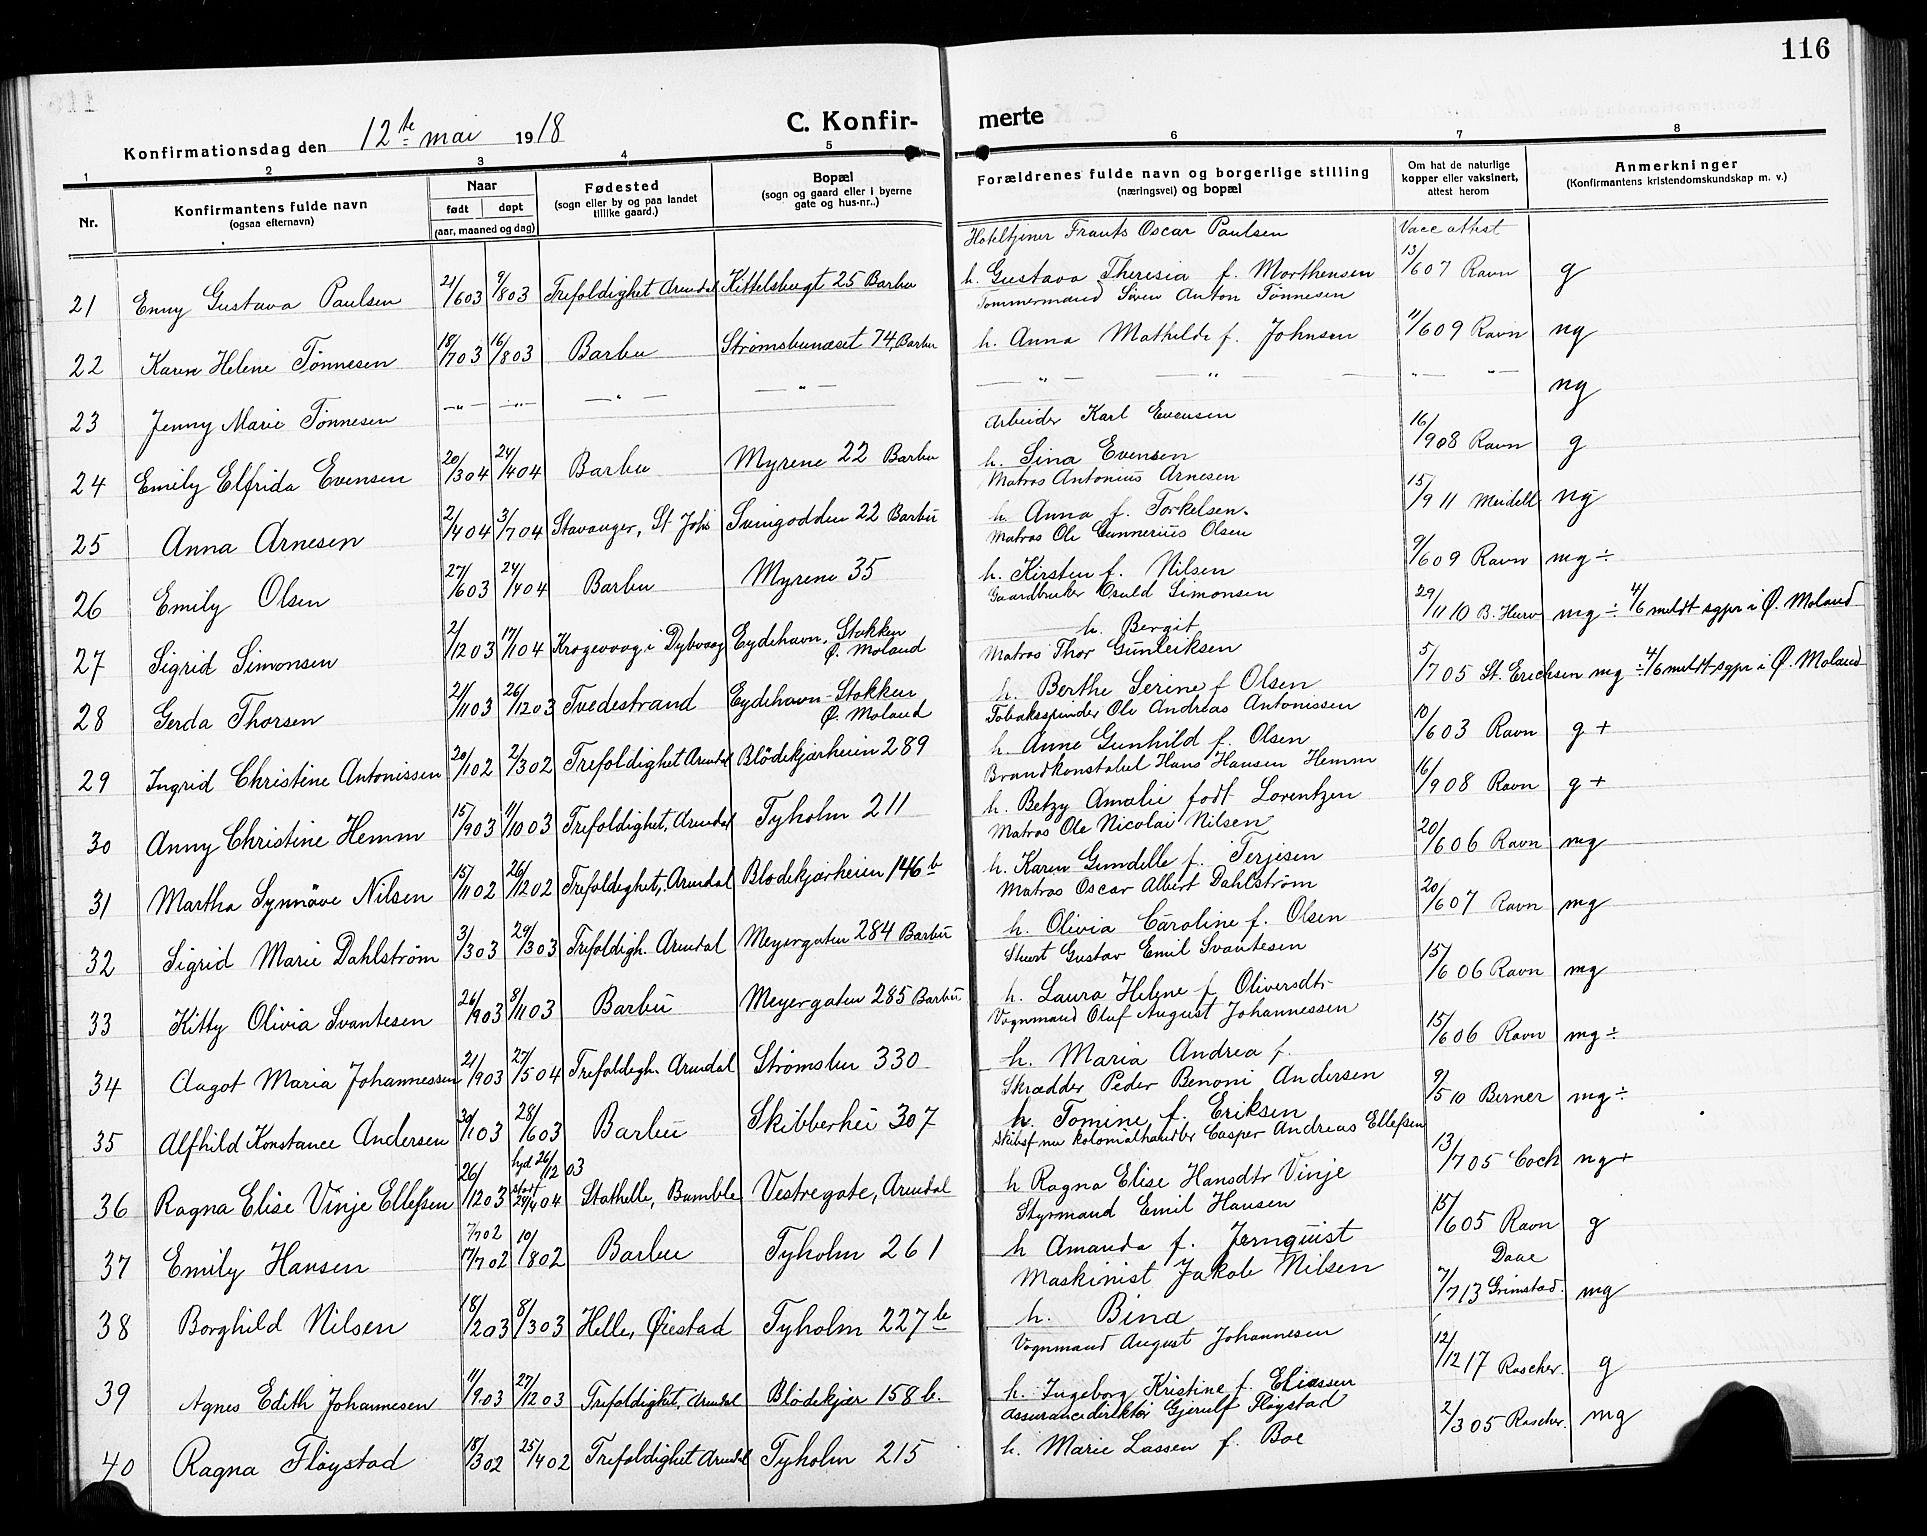 116
Konfirmationsdag den 12te mai 1918 C. Konfirmerte
1 2 3 4 5 6 7 8
Nr. Konfirmantens fulde navn (ogsaa efternavn) Naar født døpt (aar, maaned og dag) Fødested (sogn eller by og paa landet tillike gaard.) Bopæl (sogn og gaard eller i byerne gate og hus-nr..) Forældrenes fulde navn og borgerlige stilling (næringsvei) og bopæl Om hat de naturlige kopper eller vaksinert, attest herom Anmerkninger (Konfirmantens kristendomskundskap m. v.)
Hoteltjener Frants Oscar Paulsen Vacc attest
21 Enny Gustava Paulsen 21/6 03 9/8 03 Trefoldighet Arendal Kittelsbugt 25 Barbu h. Gustava Theresia f. Morthensen 13/6 07 Ravn g
Tømmermand Søren Anton Tønnesen
22 Karen Helene Tønnesen 18/7 03 16/8 03 Barbu Strømsbunæset 74, Barbu h. Anna Mathilde f. Johnsen 11/6 09 Ravn ng
23 Jenny Marie Tønnesen —"— —"— —"— —"— —"— —"— —"— ng
Arbeider Karl Evensen
24 Emily Elfrida Evensen 20/3 04 24/4 04 Barbu Myrene 22 Barbu h. Sina Evensen 16/9 08 Ravn g
Matros Antonius Arnesen
25 Anna Arnesen 2/4 04 3/7 04 Stavanger, St Johs Svingodden 22 Barbu h. Anna f. Torkelsen. 15/9 11 Meidell ng
Matros Ole Gunnerius Olsen
26 Emily Olsen 27/6 03 24/4 04 Barbu Myrene 35 h. Kirsten f. Nilsen 9/6 09 Ravn mg ÷
Gaardbruker Osuld Simonsen
27 Sigrid Simonsen 2/12 03 17/1 04 Krogevaag i Dybvaag Eydehavn, Stokken Ø. Moland h. Bergit 29/11 10 mg ÷ 4/6 meldt sgpr i Ø. Moland
Matros Thor Gunleiksen
28 Gerda Thorsen 21/11 03 26/12 03 Tvedestrand Eydehavn - Stokken Ø. Moland h. Berthe Serine f Olsen 5/7 05 St. Erichsen mg ÷ 4/6 meldt sgpr i Ø. Moland
Tobakspinder Ole Andreas Antonissen
29 Ingrid Christine Antonissen 20/1 02 2/3 02 Trefoldighet Arendal Blödekjærheien 289 h. Anne Gunhild f. Olsen 10/6 03 Ravn g +
Brandkonstabel Hans Hansen Hemm
30 Anny Christine Hemm 15/9 03 11/10 03 Trefoldighet, Arendal Tyholm 211 h. Betzy Amalie født Lorentzen 16/9 08 Ravn g +
Matros Ole Nicolai Nilsen
31 Martha Synnöve Nilsen 15/11 02 26/12 02 Trefoldighet, Arendal Blodekjærheien 146 b h. Karen Gundelle f. Terjesen 20/6 06 Ravn mg
Matros Oscar Albert Dahlström
32 Sigrid Marie Dahlström 3/3 03 29/3 03 Trefoldigh. Arendal Meyergaten 284 Barbu h. Olivia Caroline f. Olsen 20/6 07 Ravn mg
Stuert Gustav Emil Svantesen
33 Kitty Olivia Svantesen 26/9 03 8/11 03 Barbu Meyergaten 285 Barbu h. Laura Helene f Oliversdtr 15/6 06 Ravn mg
Vognmand Oluf August Johannessen
34 Aagot Maria Johannessen 21/9 03 27/5 04 Trefoldigh. Arendal Strømsbu 330 h. Maria Andrea f. 15/6 06 Ravn mg ÷
Skrædder Peder Benoni Andersen
35 Alfhild Konstance Andersen 30/1 03 28/6 03 Barbu Skibberhei 307 h. Tomine f. Eriksen 9/5 10 Berner mg ÷
Skibsf nu kolonialhandler Casper Andreas Ellefsen
36 Ragna Elise Vinje Ellefsen 26/12 03 hjd 26/12 03 stadf 24/4 04 Stathelle, Bamble Vestregate, Arendal h Ragna Elise Hansdtr Vinje 13/7 05 Coch ng +
Styrmand Emil Hansen
37 Emily Hansen 7/7 02 17/7 02 10/8 02 Barbu Tyholm 261 h Amanda f. Jernquist 15/6 05 Ravn g
Maskinist Jakob Nilsen
38 Borghild Nilsen 18/2 03 8/3 03 Helle, Øiestad Tyholm 227 b h. Bina 7/7 13 Daae Grimstad. mg
Vognmand August Johannesen
39 Agnes Edith Johannesen 11/9 03 27/12 03 Trefoldighet, Arendal Blödekjær 158 b. h. Ingeborg Kristine f. Eliassen 12/12 17 Rascher. g
Assurancedirektör Gjerulf Fløystad
40 Ragna Fløystad 18/3 02 25/4 02 Trefoldighet Arendal Tyholm 215 h. Marie Lassen f. Boe 2/3 05 Rascher. mg